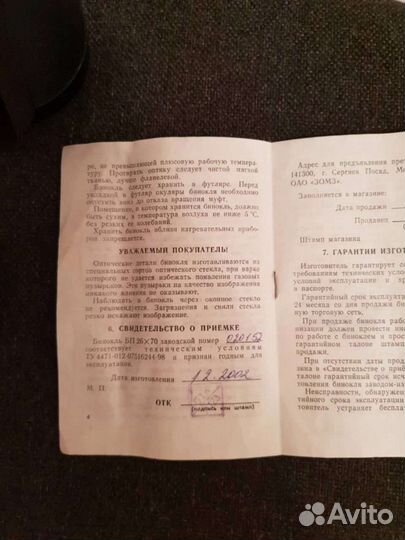 ре, не превышающей плюсовую рабочую темпера-
туру. Протирать оптику следует чистой мягкой
тканью, лучше фланелевой.
Бинокль следует хранить в футляре. Перед
укладкой в футляр окуляры бинокля необходимо
опустить вниз до отказа вращения муфт.
Помещение, в котором хранится бинокль, должно
быть сухим, а температура воздуха не ниже 5 °C,
без резких ее колебаний.
Хранить бинокль вблизи нагревательных прибо-
ров запрещается.
УВАЖАЕМЫЙ ПОКУПАТЕЛЬ!
Оптические детали бинокля изготавливаются из
специальных сортов оптического стекла, при варке
которого не удается избежать появления газовых
пузырьков. Эти пузырьки на качество изображения
никакого влияния не оказывают.
Наблюдать в бинокль через оконное стекло
не рекомендуется. Загрязнения и свили стекла
резко искажают изображение.
6. СВИДЕТЕЛЬСТВО О ПРИЕМКЕ
Бинокль БП 26×70 заводской номер 020152
соответствует техническим условиям
ТУ 4471-012-07516244-98 и признан годным для
эксплуатации.
Дата изготовления 12.2002
М. П.
ОТК
(подпись или штамп)
4
Адрес для предъявления пре
141300, г. Сергиев Посад, Мо
ОАО «ЗОМЗ».
Заполняется в магазине:
Дата продажи
Продавец
Штамп магазина
7. ГАРАНТИИ ИЗГОТОВ
Изготовитель гарантирует со
требованиям технических услов
условий эксплуатации и хр
в паспорте.
Гарантийный срок эксплуата
24 месяца со дня продажи би
ную торговую сеть.
При продаже бинокля работ
низации должен провести ин
по работе с биноклем и прос
гарантийном талоне штамп
продажи.
При отсутствии даты продаж
зина в «Свидетельстве о приё
талоне гарантийный срок исч
товления бинокля заводом-из
Неисправности, обнаружен
тийного срока эксплуатации
товитель устраняет бесплат
Avito